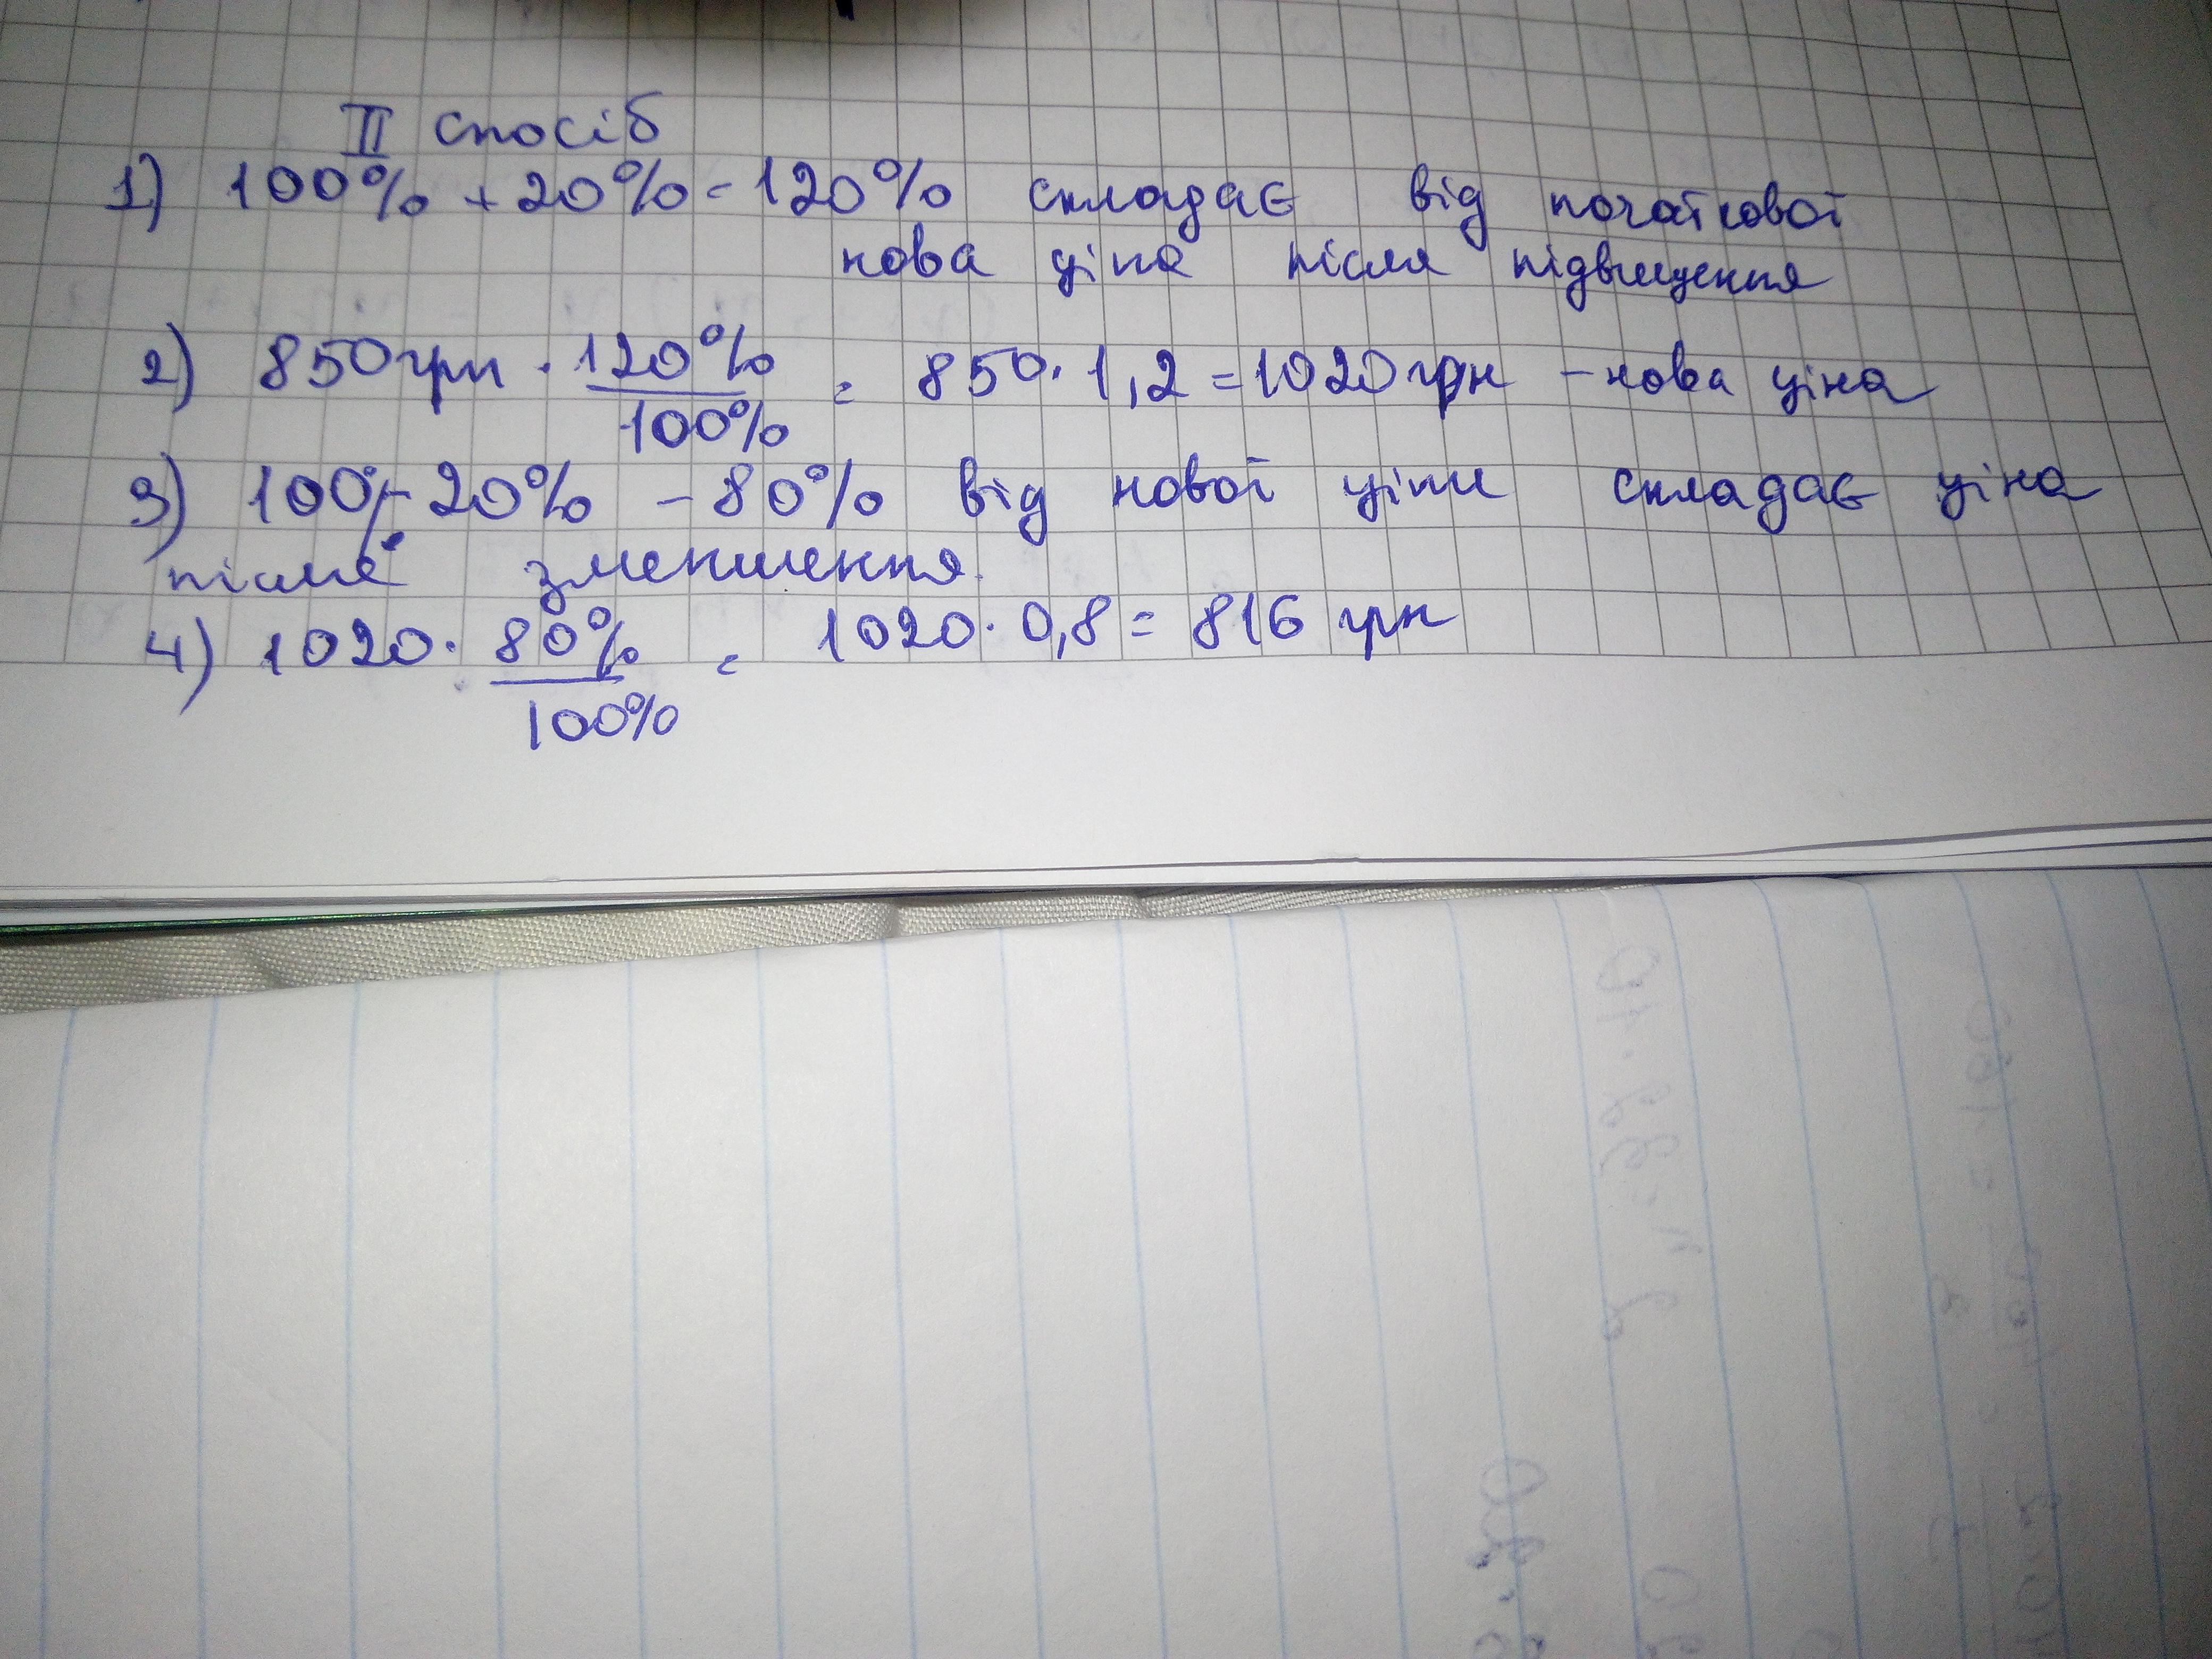 II спосіб
1) 100% + 20% = 120% складає від початкової
нова ціна після підвищення
2) 850 грн · 120%/100% = 850 · 1,2 = 1020 грн - нова ціна
3) 100% - 20% - 80% від нової ціни складає ціна
після зменшення.
4) 1020 · 80%/100% = 1020 · 0,8 = 816 грн